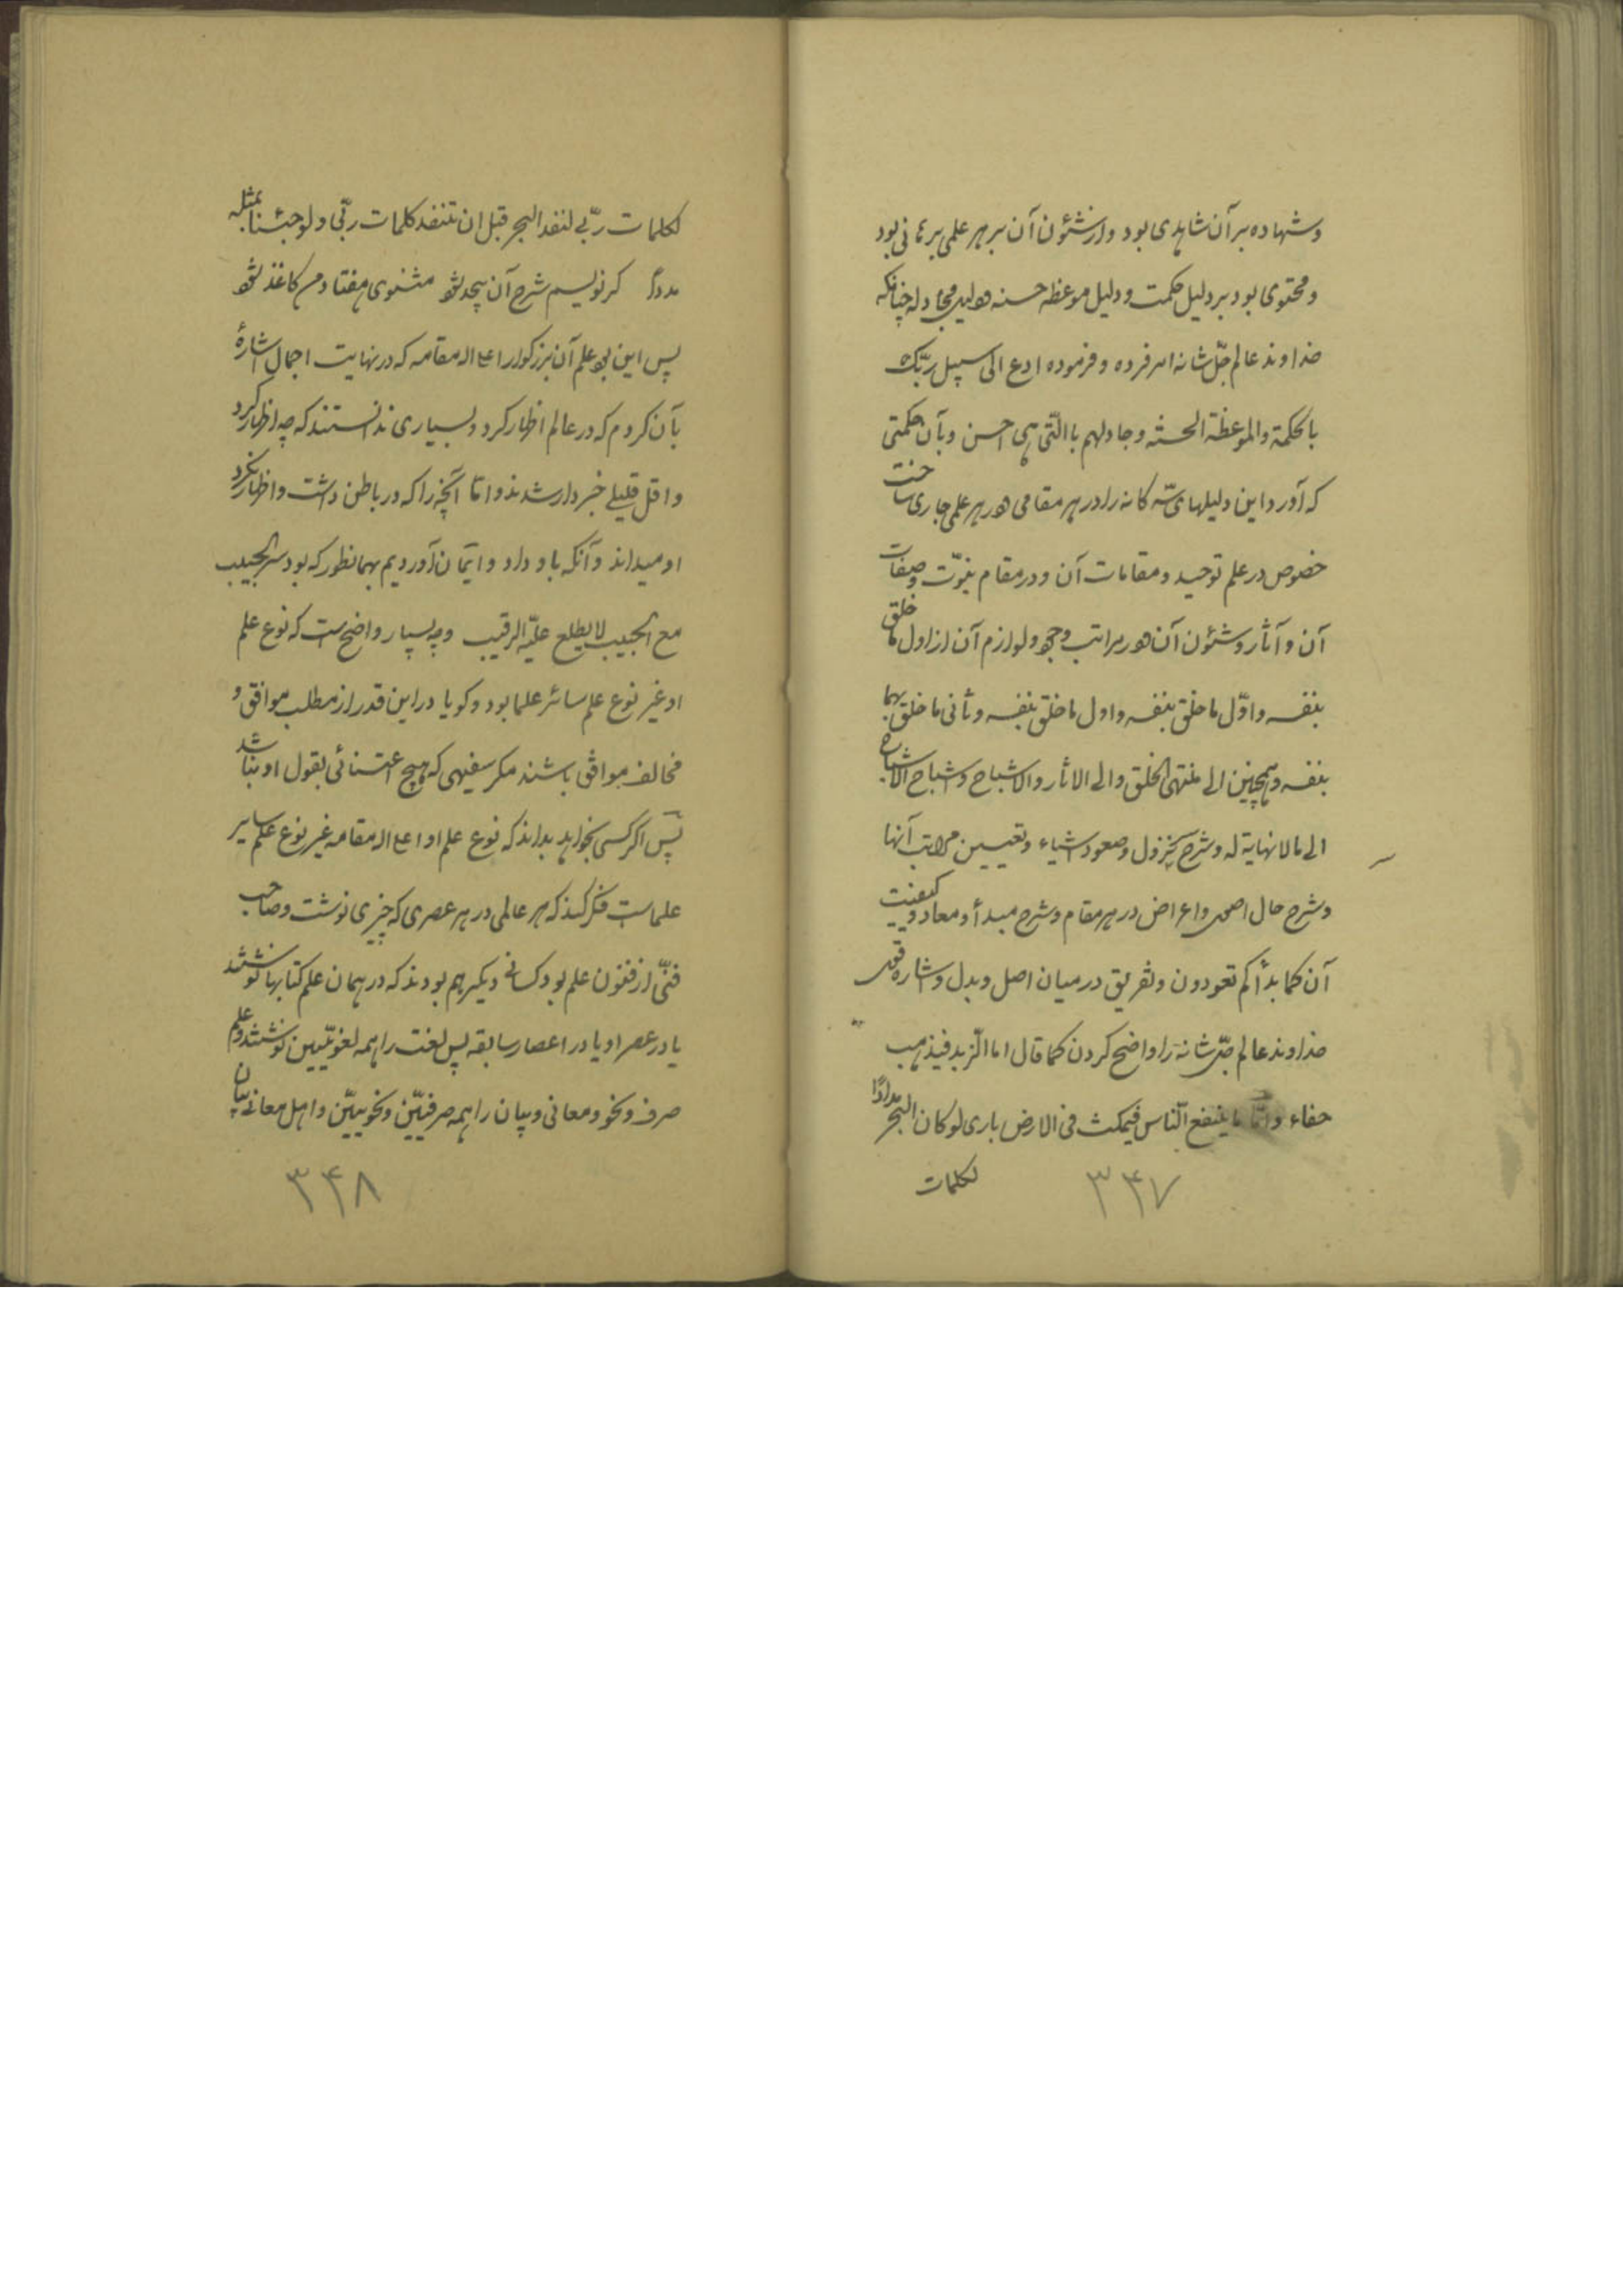 و شهاده بر آن شاهدی بود و از شئون آن بر هر علمی برهانی بود
و محتوی بود بر دلیل حکمت و دلیل موعظه حسنه و دلیل مجادله چنانکه
خداوند عالم جلّ شانه امر فرده و فرموده ادع الی سبیل ربّک
بالحکمة والموعظة الحسنه و جادلهم باالتی هی احسن و بآن حکمتی
که آورد این دلیلهای سّه کانه را در هر مقامی و در هر علمی جاری ساخت
خصوص در علم توحید و مقامات آن و در مقام نبوّت و صفات
آن و آثار و شئون آن و در مراتب وجود و لوازم آن از اول ما خلق
بنفسه و اوّل ما خلق بنفسه و اول ما خلق بنفسه و ثانی ما خلق بهما
بنفسه و همچنین الی منتهی الخلق و الی الاثار و الاشباح و اشباح الاشباح
الی مالا نهایة له و شرح نزول و صعود اشیاء و تعیین مراتب آنها
و شرح حال اصول و اعراض در هر مقام و شرح مبدأ و معاد و کیفیت
آن کما بدأکم تعودون و تفریق در میان اصل و بدل و اشاره قول
خداوند عالم جلّ شانه را واضح کردن کما قال اما الزبد فیذهب
جفاء و امّا ما ینفع النّاس فیمکث فی الارض باری لو کان البحر مدادًا
لکلمات
۳۴۷
لکلمات ربّی لنفد البحر قبل ان تنفد کلمات ربّی و لو جئنا بمثله
مددًا کر نویسم شرح آن بیحد شود مثنوی هفتاد من کاغذ شود
پس این بود علم آن بزرکوار اعلی الله مقامه که در نهایت اجمال اشارهٔ
بآن کردم که در عالم اظهار کرد و بسیاری ندانستند که چه اظهار کرد
و اقل قلیلی خبردار شدند و امّا آنچه را که در باطن داشت و اظهار نکرد
او میداند و آنکه باو داد و ایمان آوردیم بهمانطور که بود سرالحبیب
مع الحبیب لا یطلع علیه الرقیب و چه بسیار واضح است که نوع علم
او غیر نوع علم سائر علما بود و کویا در این قدر از مطلب موافق و
مخالف موافق باشند مکر سفیهی که هیچ اعتنائی بقول او نباشد
پس اکر کسی بخواهد بداند که نوع علم او اعلی الله مقامه غیر نوع علم سایر
علماست فکر کند که هر عالمی در هر عصری که چیزی نوشت و صاحب
فنّی از فنون علم بود کسانی دیکر هم بودند که در همان علم کتابها نوشتند
یا در عصر او یا در اعصار سابقه پس لغت را همه لغویّین نوشتند و علم
صرف و نحو و معانی و بیان را همه صرفیّین و نحویّین و اهل معانی بیان
۳۴۸